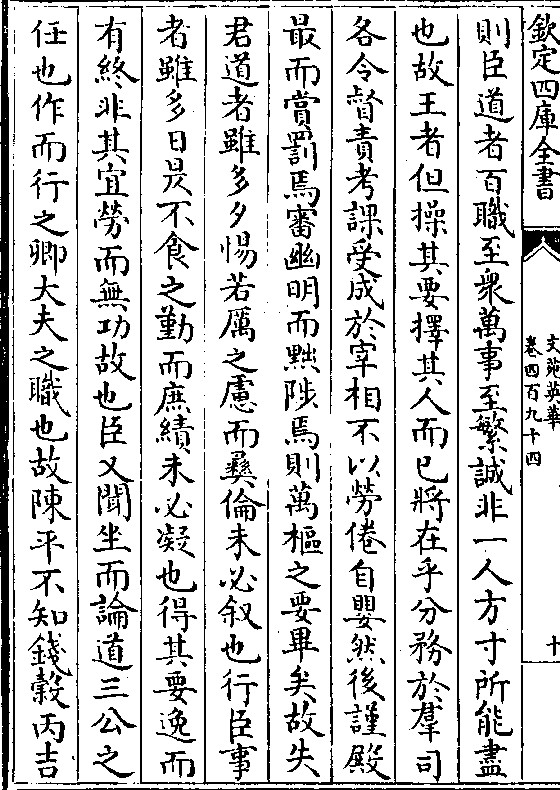 欽定四庫全書
文苑英華
卷四百九十四
十
則臣道者百職至衆萬事至繁誠非一人方寸所能盡
也故王者但操其要擇其人而已將在乎分務於羣司
各令督責考課受成於宰相不以勞倦自嬰然後謹殿
最而賞罰焉審幽明而黜陟焉則萬樞之要畢矣故失
君道者雖多夕惕若厲之慮而彞倫未必叙也行臣事
者雖多日昃不食之勤而庶績未必凝也得其要逸而
有終非其宜勞而無功故也臣又聞坐而論道三公之
任也作而行之卿大夫之職也故陳平不知錢穀丙吉